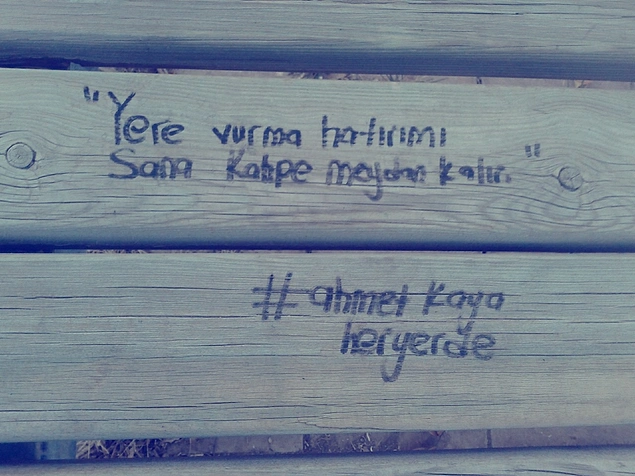 "Yere vurma hatırımı
Sana Kahpe meydan kalır."
# ahmet kaya
heryerde